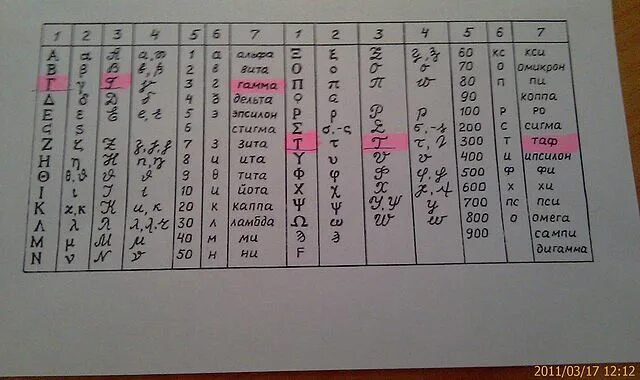 1 2 3 4 5 6 7 1 2 3 4 5 6 7
Α α А а, 1 а альфа Ξ ξ Ξ ξ, ξ 60 кс кси
Β β В в, β 2 в вита Ο ο О о 70 о омикрон
Γ γ Г γ 3 г гамма Π π П ϖ 80 п пи
Δ δ D δ 4 д дельта Ϙ 90 коппа
Ε ε Е е, ε 5 э эпсилон Ρ ρ Р р 100 р ро
Ϛ ϛ 6 стигма Σ σ,-ς Σ σ,-ς 200 с сигма
Ζ ζ Z 7 з зита Τ τ Т τ, 300 т таф
Η η Н η 8 и ита Υ υ U υ 400 и ипсилон
Θ θ,ϑ ϑ ϑ 9 θ тита Φ φ Ф φ, φ 500 ф фи
Ι ι I ι 10 и йота Χ χ X χ 600 х хи
Κ ϰ,κ К и, к 20 к каппа Ψ ψ Ψ ψ 700 пс пси
Λ λ λ λ, λ 30 л ламбда Ω ω W ω 800 о омега
Μ μ М μ 40 м миϠ 900 сампи
Ν ν N ν 50 н ни F дигамма
2011/03/17 12:12